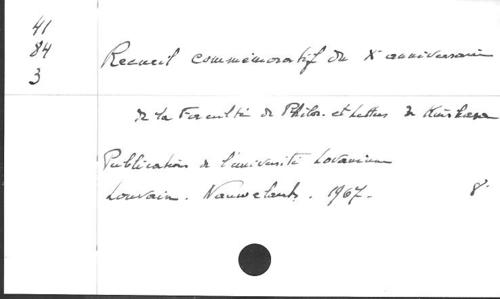 41
84
3
Recueil commémoratif du Xe anniversaire
de la Faculté de Philos. et Lettres de Kinshasa
Publications de l'université Lovanium
Louvain. Nauwelaerts. 1967. 8°